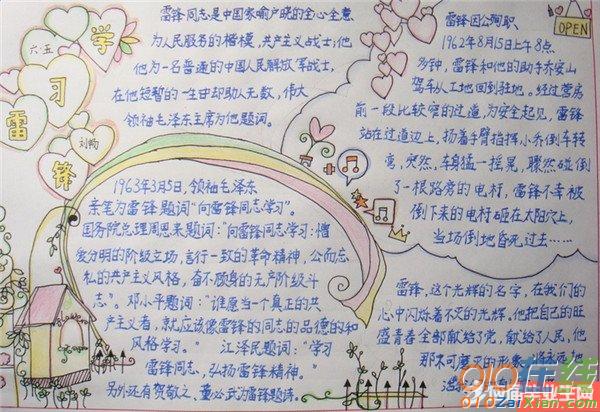 学
习
雷
锋
六.五
刘畅
雷锋同志是中国家喻户晓的全心全意
为人民服务的楷模,共产主义战士;他
他为一名普通的中国人民解放军战士,
在他短暂的一生却助人无数,伟大
领袖毛泽东主席为他题词。
1963年3月5日,领袖毛泽东
亲笔为雷锋题词“向雷锋同志学习”。
国务院总理周恩来题词:“向雷锋同志学习:憎
爱分明的阶级立场,言行一致的革命精神,公而忘
私的共产主义风格,奋不顾身的无产阶级斗
志”。邓小平题词:“谁愿当一个真正的共
产主义者,就应该像雷锋的同志的品德的和
风格学习。” 江泽民题词:“学习
雷锋同志,弘扬雷锋精神。”
另外还有贺敬之、董必武为雷锋题诗。
OPEN
雷锋因公殉职
1962年8月15日上午8点
多钟,雷锋和他的助手乔安山
驾车从工地回到驻地。经过营房
前一段比较窄的过道,为安全起见,雷锋
站在过道边上,扬着手臂指挥小乔倒车转
弯,突然,车身猛一摇晃,骤然碰倒
了一根路旁的电杆,雷锋不幸被
倒下来的电杆砸在太阳穴上,
当场倒地昏死过去……
雷锋,这个光辉的名字,在我们的
心中闪烁着不灭的光辉,他把自己的旺
盛青春全部献给了党,献给了人民,他
那不可磨灭的形象
910在线
910zaixian.com